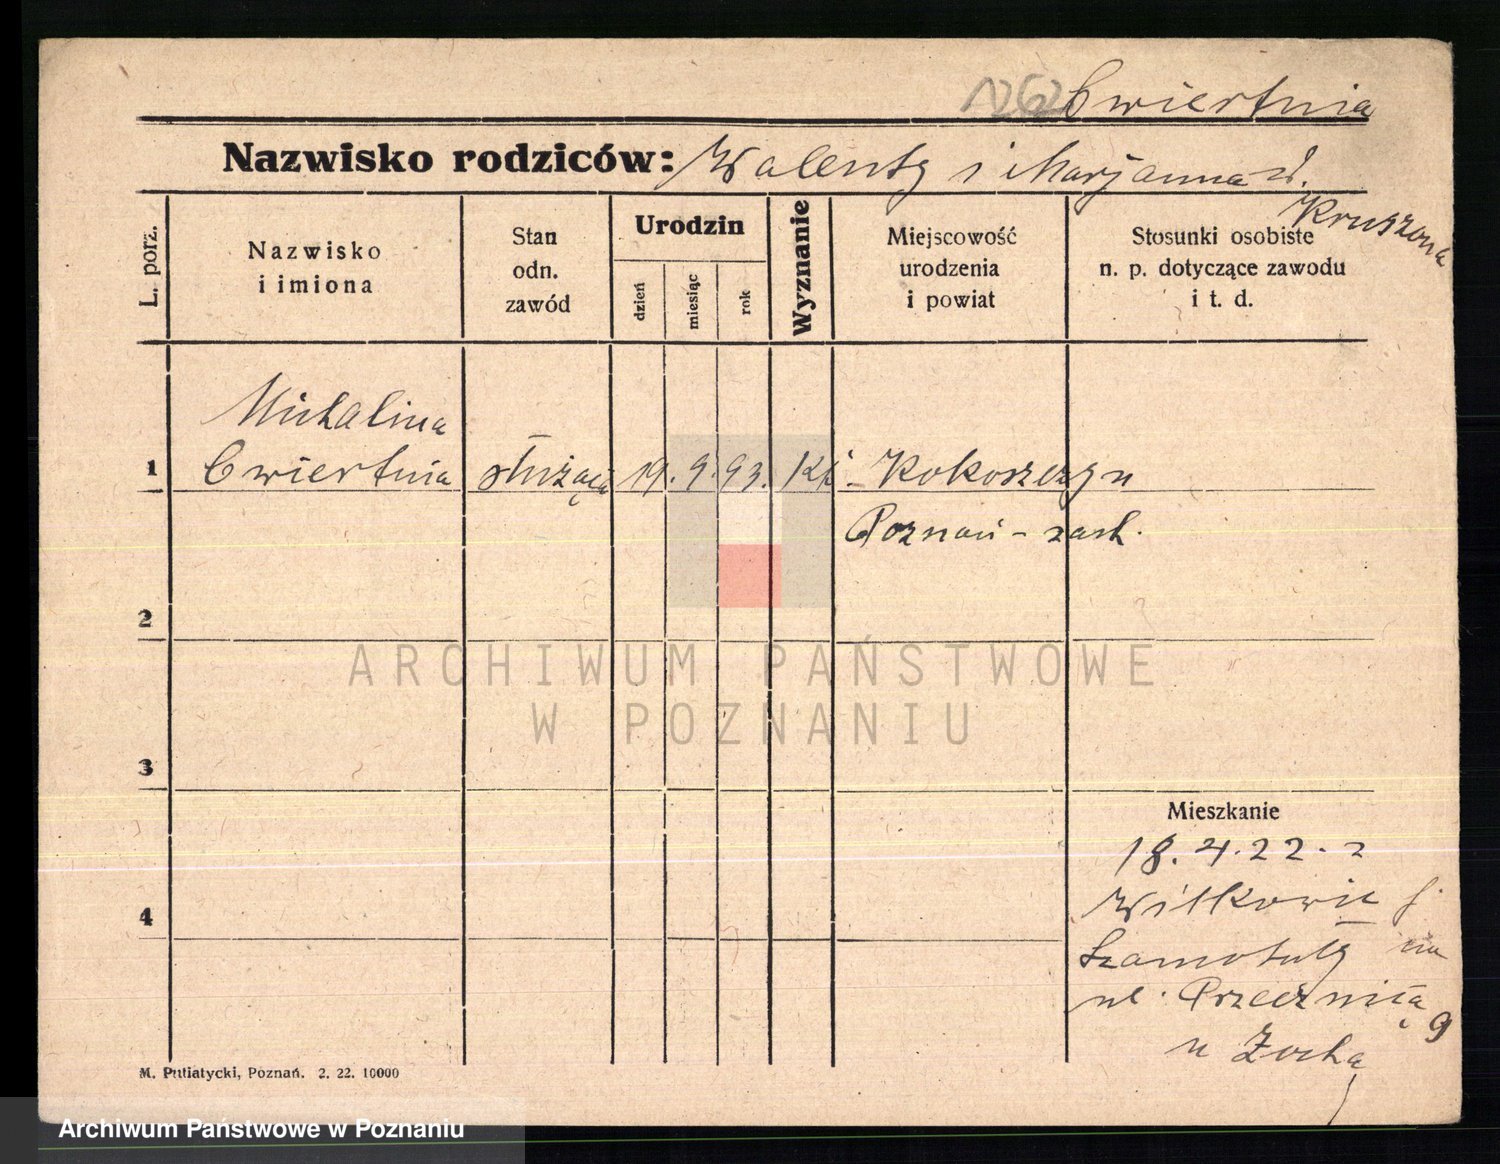 1262 Cwiertnia
Nazwisko rodziców: Walenty i Marjanna d.
Kruszona
L. porz.
Nazwisko
i imiona
Stan
odn.
zawód
Urodzin
dzień
miesiąc
rok
Wyznanie
Miejscowość
urodzenia
i powiat
Stosunki osobiste
n. p. dotyczące zawodu
i t. d.
Michalina
1 Cwiertnia służąca 19. 9. 93. Kł. Kokoszczyn
Poznań - zach.
2
3
4
Mieszkanie
18. 4. 22. z
Szamotuły na
ul.
9
u
M. Putiatycki, Poznań. 2. 22. 10000
ARCHIWUM PAŃSTWOWE
W POZNANIU
Archiwum Państwowe w Poznaniu